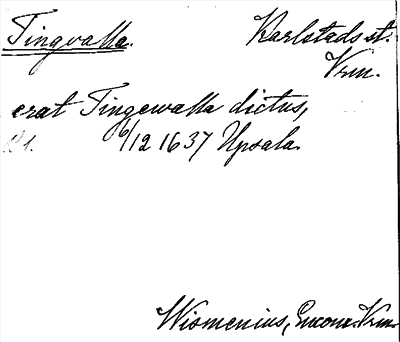 Tingvalla. Karlstads st.
Vrm.
erat Tingewalla dictus,
6/12 1637 Upsala.
Wismenius, Encom. Vrm.